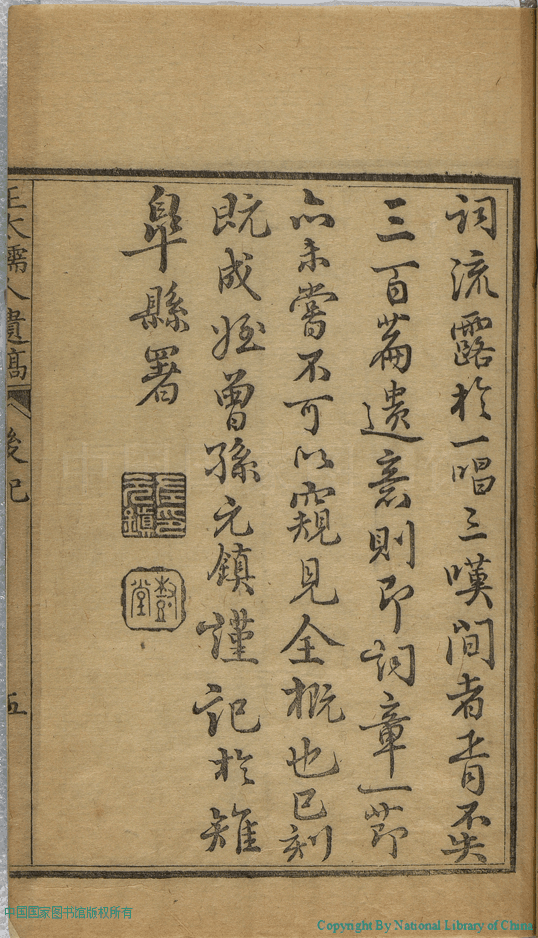 詞流露於一唱三嘆間者皆不失
三百篇遺意則即詞章一節
亦未嘗不可以窺見全概也已刻
既成姪曾孫元鎮謹記於雉
皋縣署
孺人遺稿
後記
五
中国国家图书馆版权所有
Copyright By National Library of China